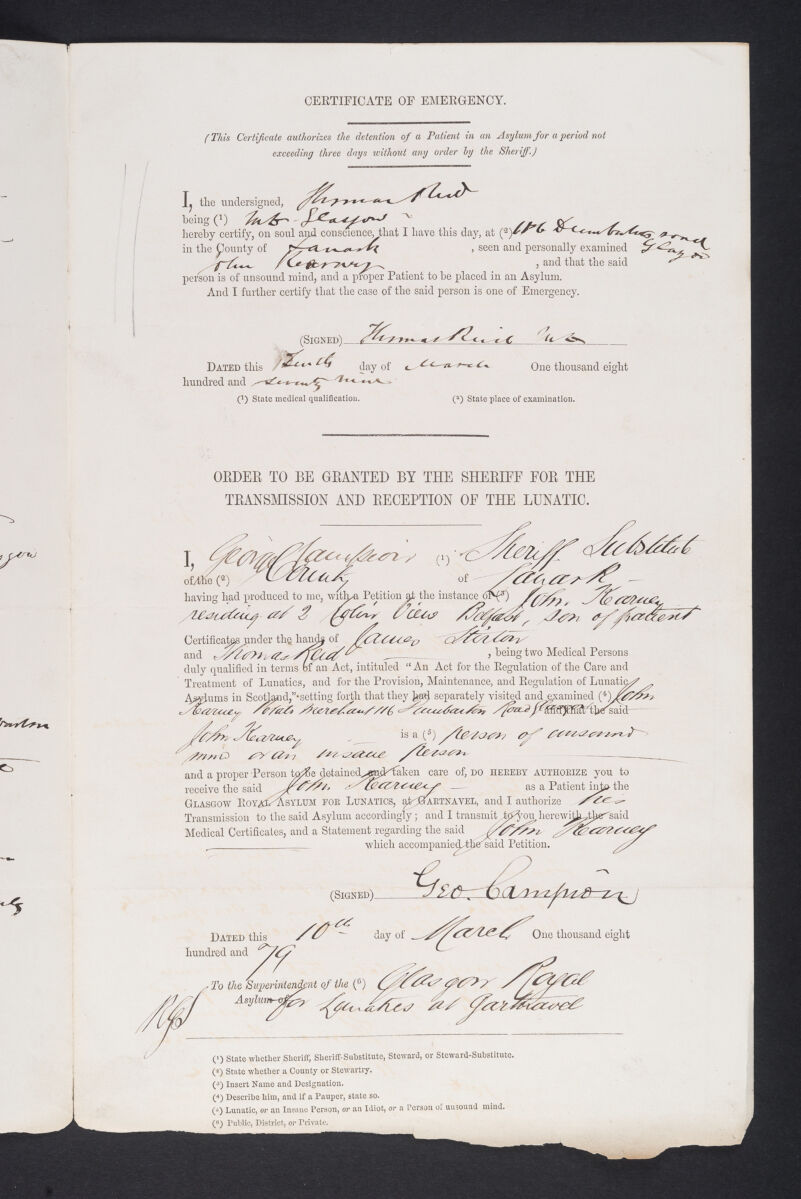 CERTIFICATE OF EMERGENCY.
(This Certificate authorizes the detention of a Patient in an Asylum for a period not
exceeding three days without any order by the Sheriff.)
I, the undersigned, Thomas Reid
being (¹) Glasgow
hereby certify, on soul and conscience, that I have this day, at (²) 116 Dumbarton road
Glasgow
in the County of Lanark , seen and personally examined
John Kearney , and that the said
person is of unsound mind, and a proper Patient to be placed in an Asylum.
And I further certify that the case of the said person is one of Emergency.
(SIGNED) Thomas Reid
DATED this Tenth day of March One thousand eight
hundred and seventy nine
(¹) State medical qualification. (²) State place of examination.
ORDER TO BE GRANTED BY THE SHERIFF FOR THE
TRANSMISSION AND RECEPTION OF THE LUNATIC.
I, George Campion (¹) Sheriff Substitute
of the (²) County of Lanark
having had produced to me, with a Petition at the instance of (³) John Kearney
residing at 2 View Belfast, son of patient
Certificates under the hands of James Stirton
and Thomas Reid , being two Medical Persons
duly qualified in terms of an Act, intituled "An Act for the Regulation of the Care and
Treatment of Lunatics, and for the Provision, Maintenance, and Regulation of Lunatic
Asylums in Scotland," setting forth that they had separately visited and examined (⁴) John
Kearney Potato merchant 116 Dumbarton Road Glasgow and that the said
John Kearney is a (⁵) person of unsound
mind or an insane person
and a proper Person to be detained and taken care of, DO HEREBY AUTHORIZE you to
receive the said John Kearney as a Patient into the
GLASGOW ROYAL ASYLUM FOR LUNATICS, at GARTNAVEL, and I authorize his
Transmission to the said Asylum accordingly; and I transmit to you herewith the said
Medical Certificates, and a Statement regarding the said John Kearney
which accompanied the said Petition.
(SIGNED) Geo. Campion
DATED this 10th day of March One thousand eight
hundred and 79
To the Superintendent of the (⁶) Glasgow Royal
Asylum of for Lunatics at Gartnavel
(¹) State whether Sheriff, Sheriff-Substitute, Steward, or Steward-Substitute.
(²) State whether a County or Stewartry.
(³) Insert Name and Designation.
(⁴) Describe him, and if a Pauper, state so.
(⁵) Lunatic, or an Insane Person, or an Idiot, or a Person of unsound mind.
(⁶) Public, District, or Private.